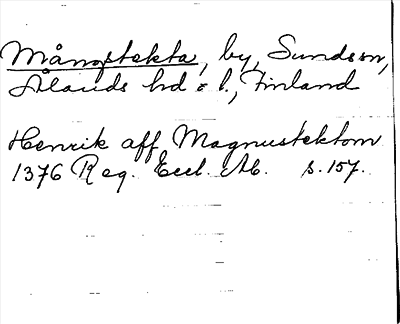 Mångstekta, by, Sundsm,
Ålands hd o l., Finland
Henrik aff Magnustektom
1376 Reg. Eccl. Ab. s. 157.